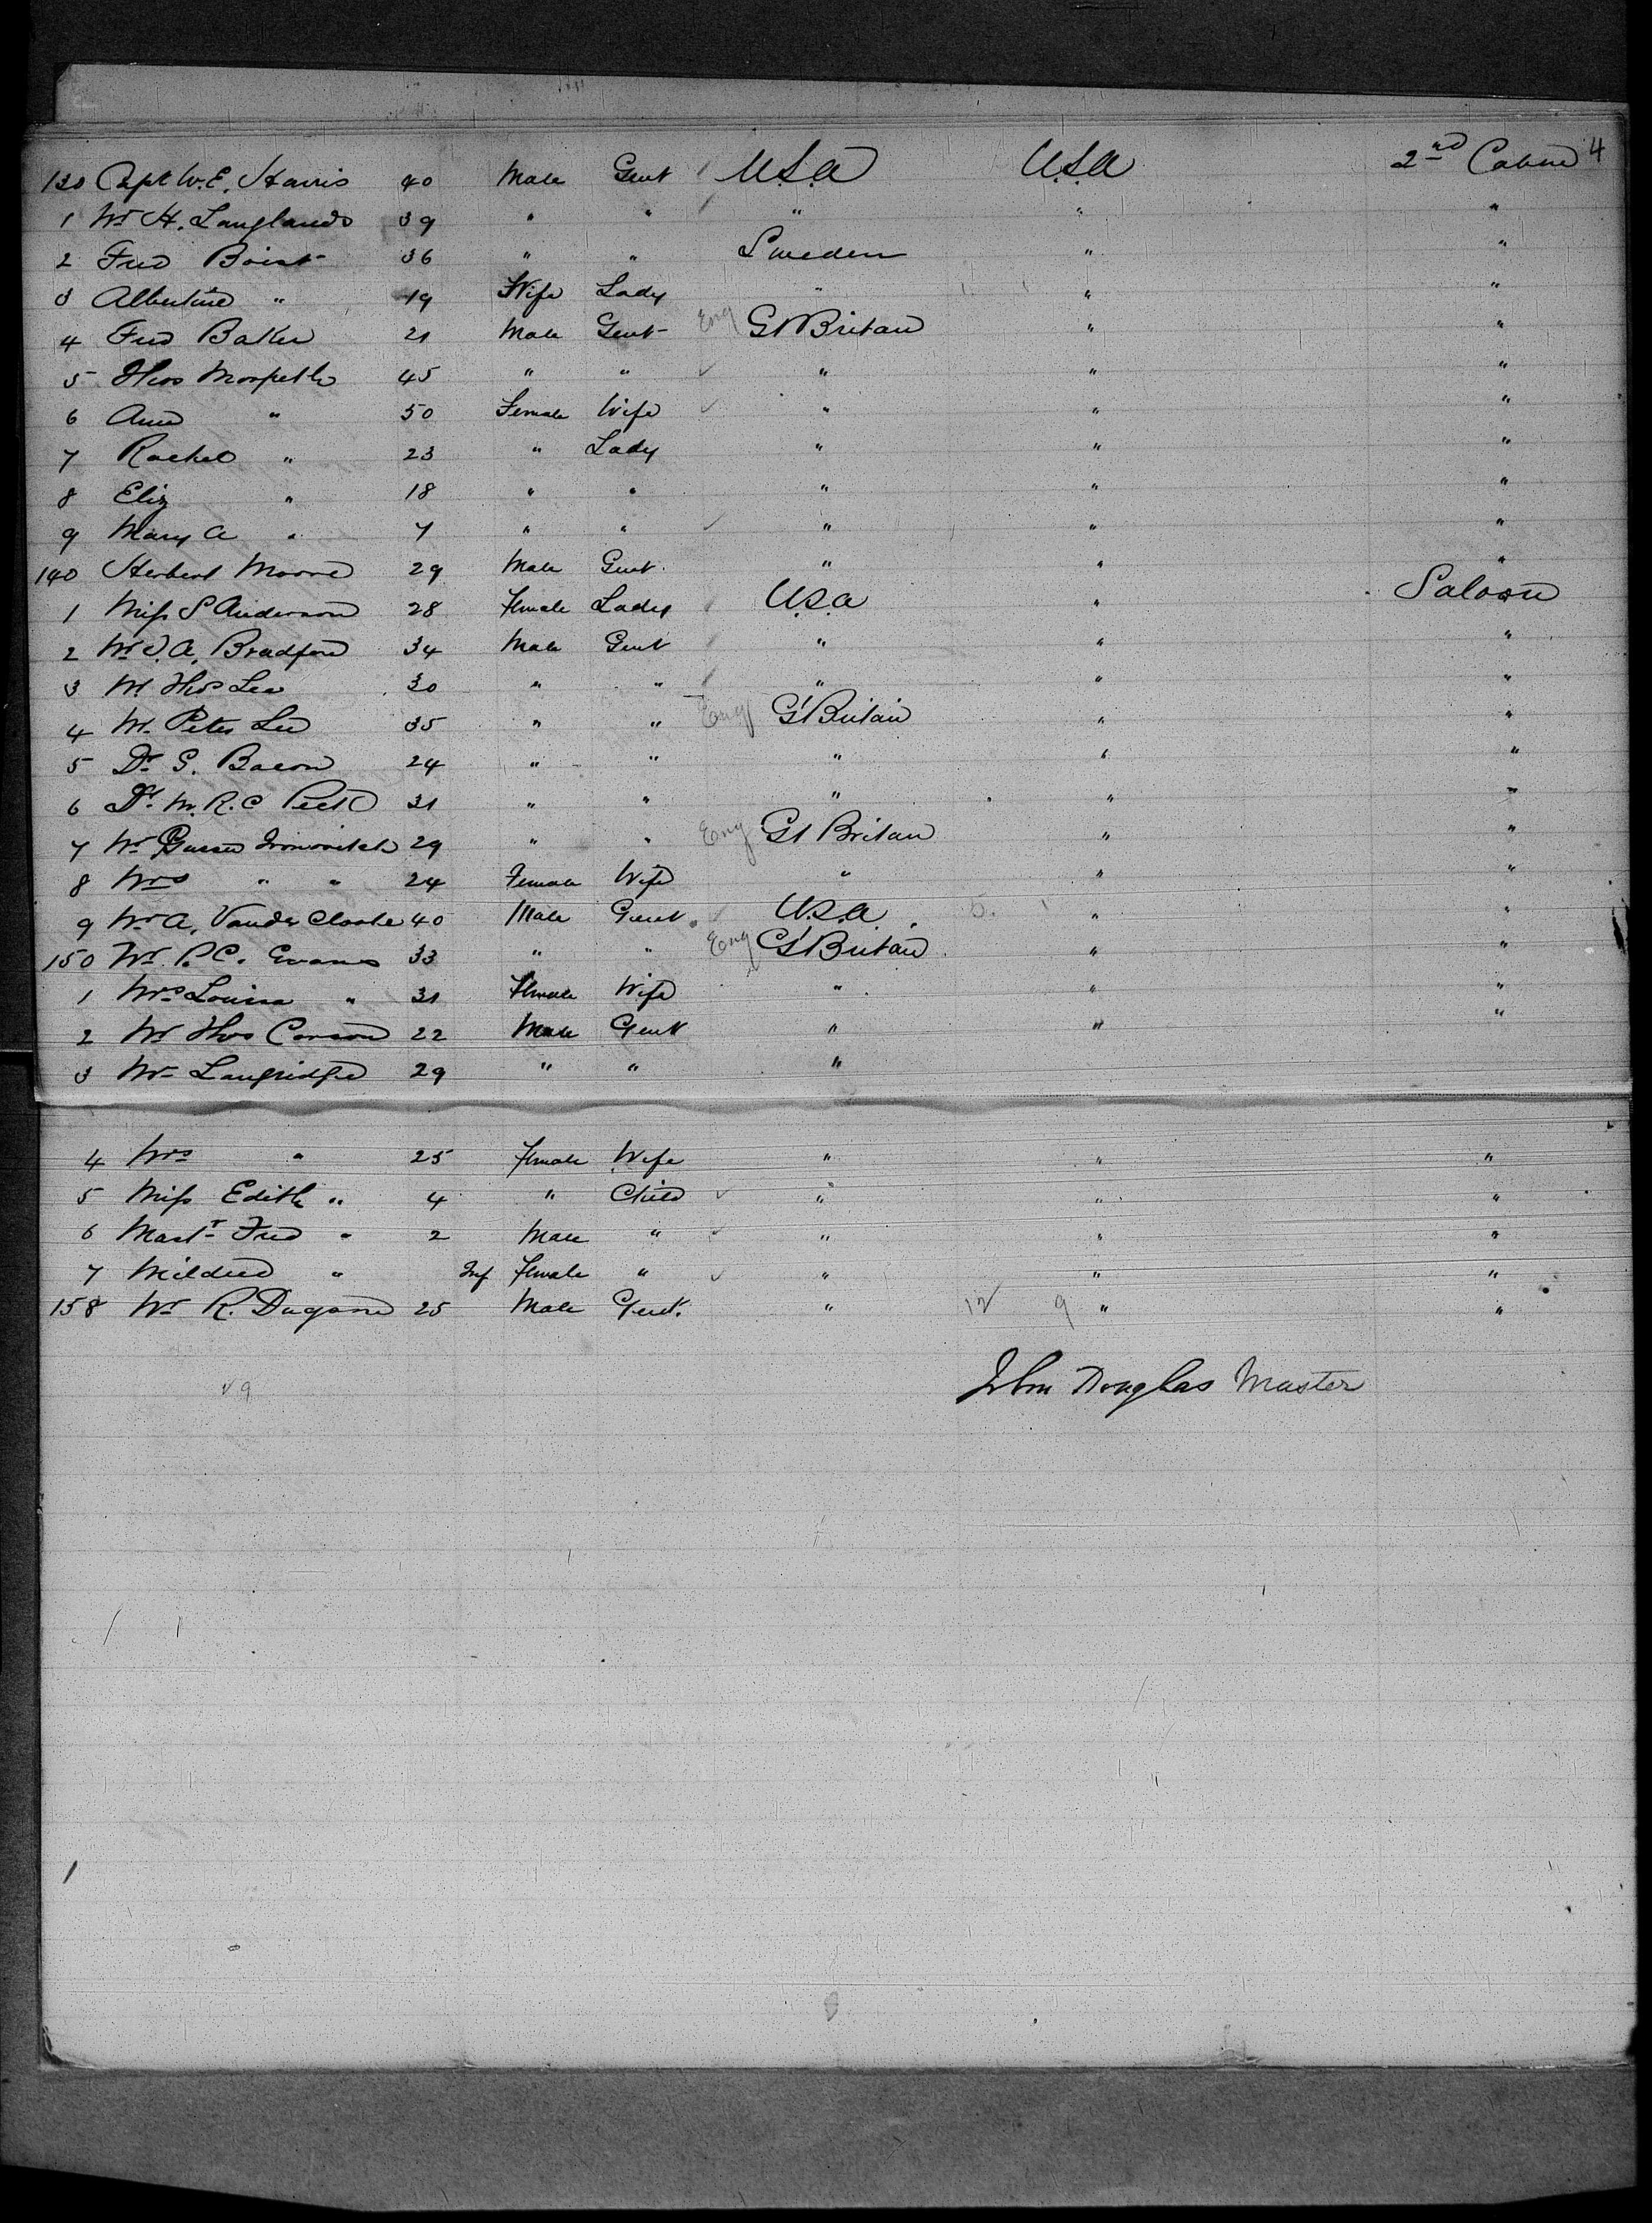 4
130 Capt W. E. Harris 40 Male Gent U.S.A U.S.A 2nd Cabin
1 Mr H. Langlands 39 " " " " "
2 Fred Boist 36 " " Sweden " "
3 Albertine " 19 Wife Lady " " "
4 Fred Baker 21 Male Gent Eng Gt Britan " "
5 Thos Morpeth 45 " " " " "
6 Ann " 50 Female Wife " " "
7 Rachel " 23 " Lady " " "
8 Eliz " 18 " " " " "
9 Mary A " 7 " " " " "
140 Herbert Moore 29 Male Gent " " "
1 Miss S Anderson 28 Female Lady U.S.A " Saloon
2 Mr J. A. Bradford 34 Male Gent " " "
3 Mr Thos Lea 30 " " " " "
4 Mr Peter Lee 35 " " Eng Gt Britain " "
5 Dr G. Bacon 24 " " " " "
6 Dr. M. R. C Peck 31 " " " " "
7 Mr 29 " " Eng Gt Britan " "
8 Mrs " " 24 Female Wife " " "
9 Mr A. Vander 40 Male Gent U.S.A " "
150 Mr P. C. Evans 33 " " Eng Gt Britan " "
1 Mrs Louisa " 31 Female Wife " " "
2 Mr Thos Carson 22 Male Gent " " "
3 Mr Langridge 29 " " "
4 Mrs " 25 Female Wife " " "
5 Miss Edith " 4 " Child " " "
6 Mastr Fred " 2 Male " " " "
7 Mildred " Inf Female " " " "
158 Mr R. Dugan 25 Male Gent. " 12 9 " "
John Douglas Master
9